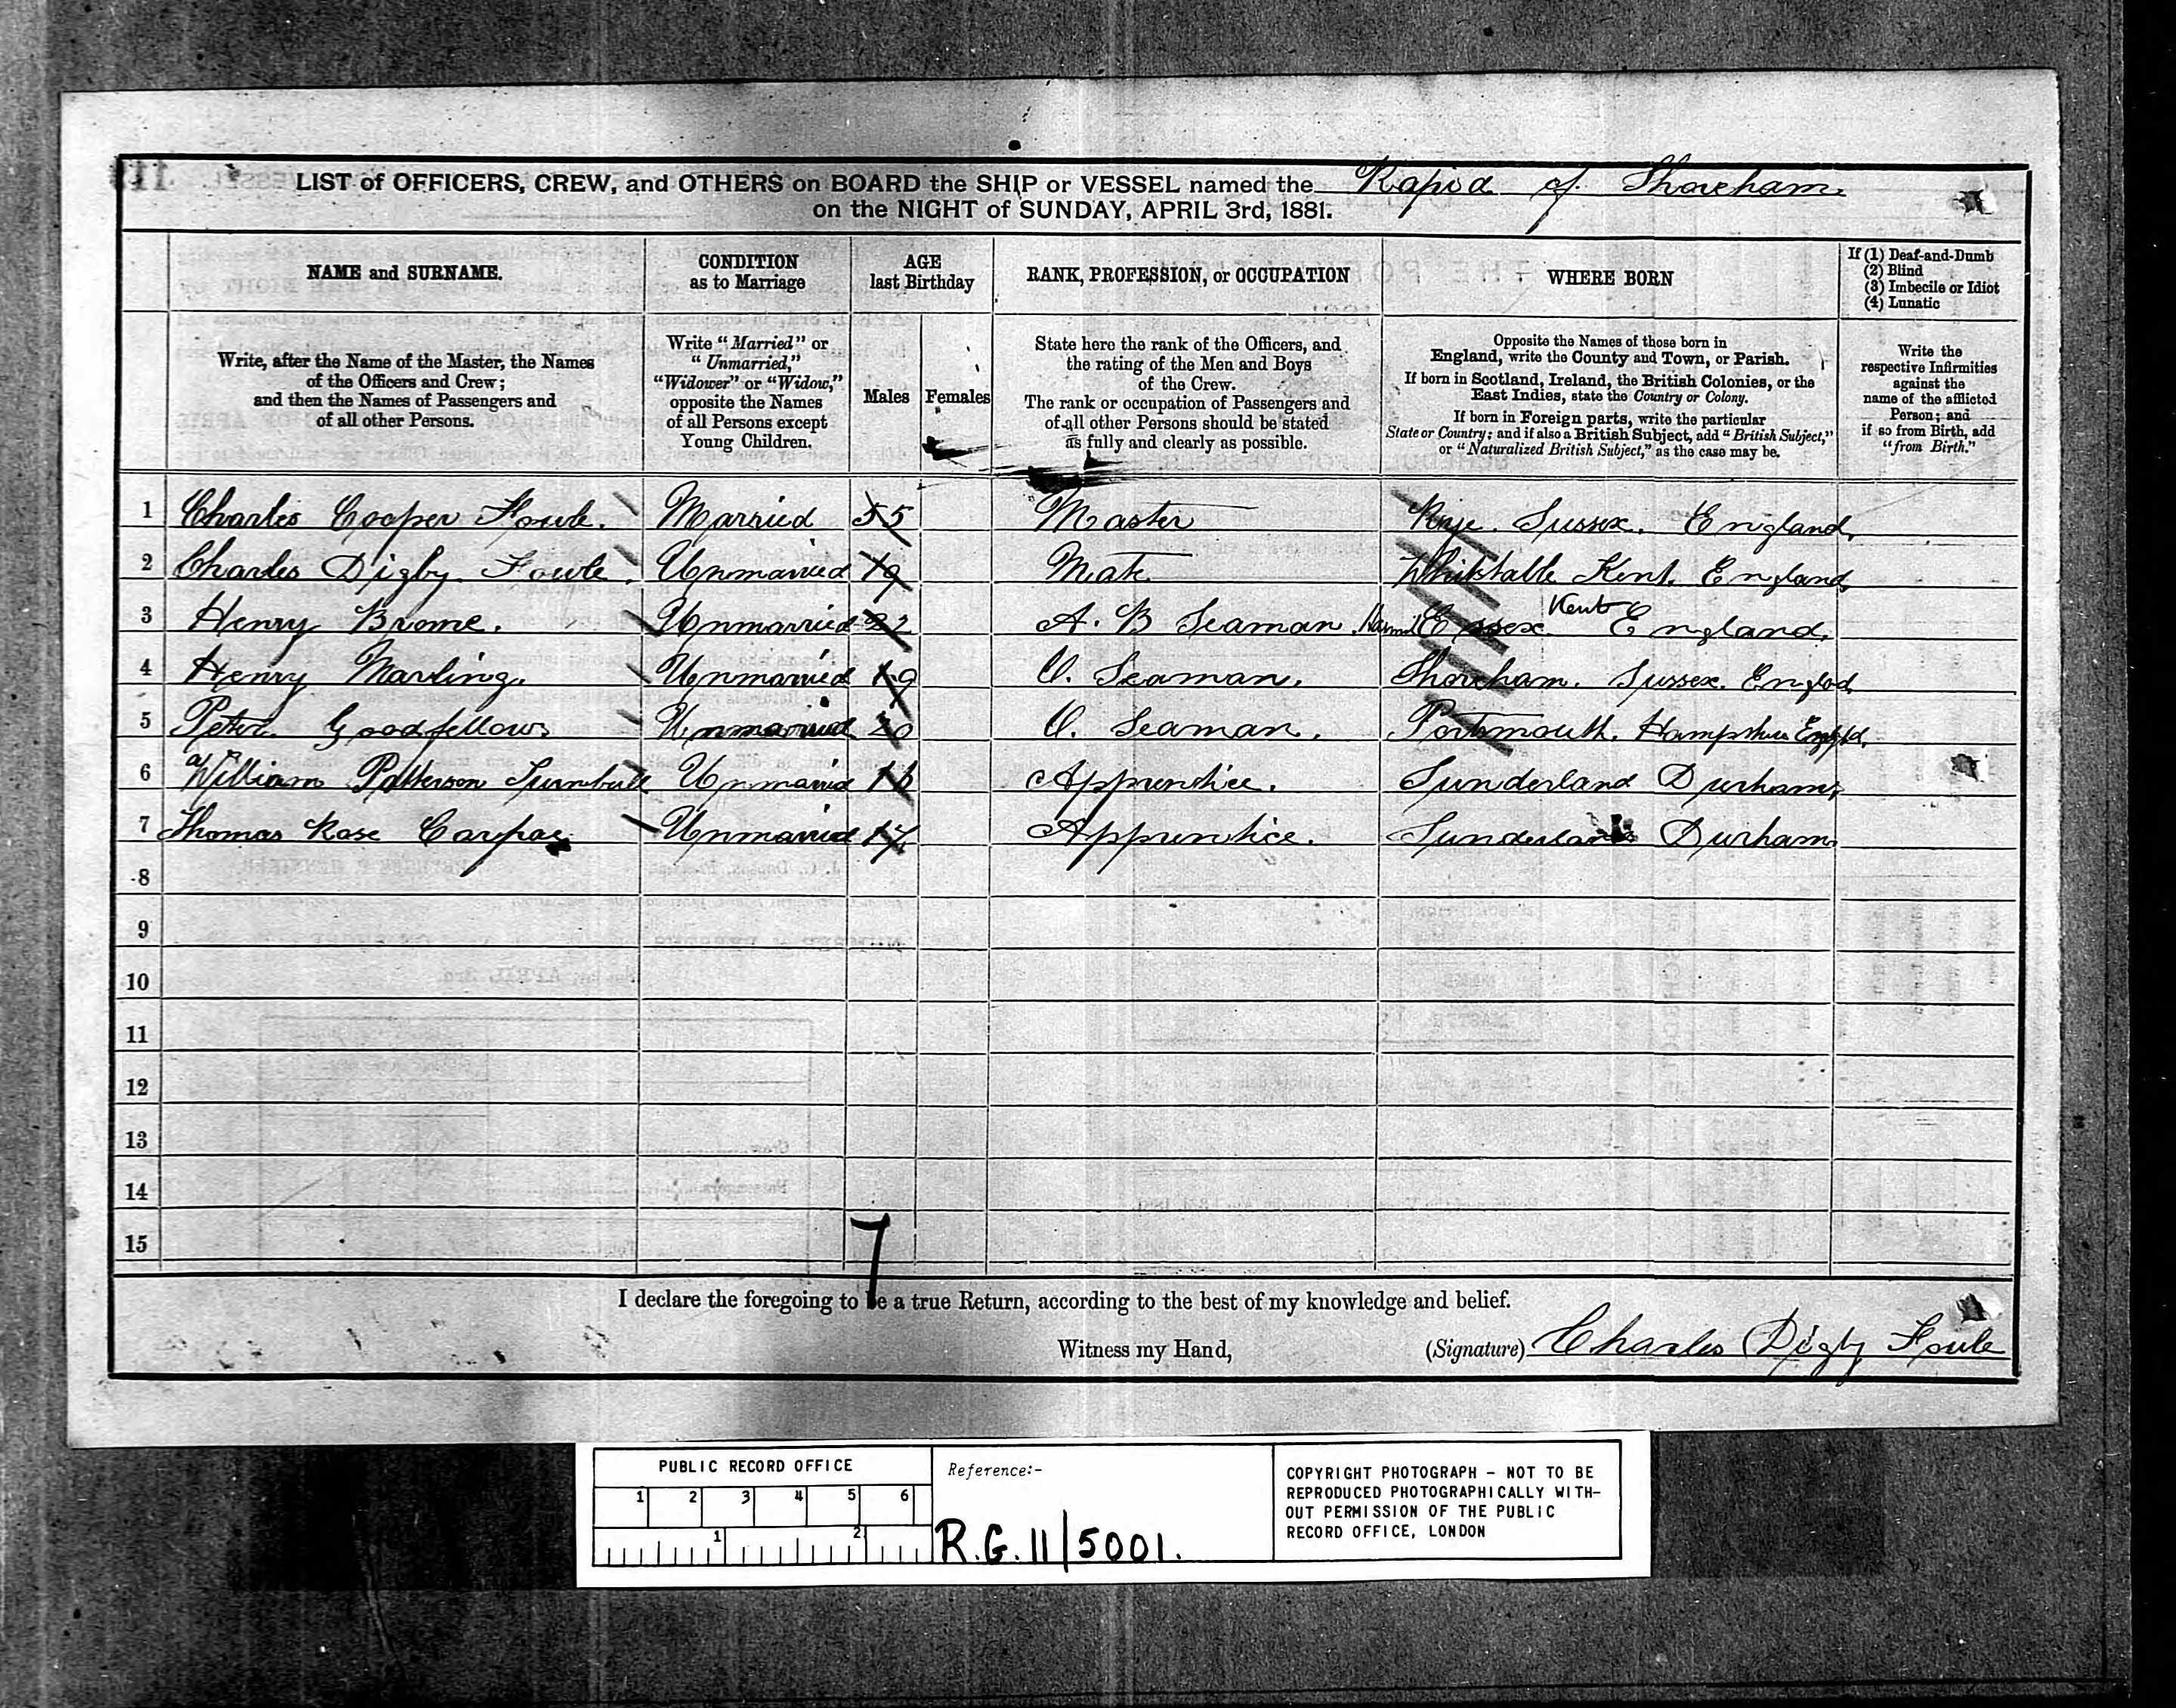 LIST of OFFICERS, CREW, and OTHERS on BOARD the SHIP or VESSEL named the Rapid of Shoreham
on the NIGHT of SUNDAY, APRIL 3rd, 1881.
NAME and SURNAME.
CONDITION
as to Marriage
AGE
last Birthday
RANK, PROFESSION, or OCCUPATION
WHERE BORN
If (1) Deaf-and-Dumb
(2) Blind
(3) Imbecile or Idiot
(4) Lunatic
Write, after the Name of the Master, the Names
of the Officers and Crew;
and then the Names of Passengers and
of all other Persons.
Write "Married" or
"Unmarried,"
"Widower" or "Widow,"
opposite the Names
of all Persons except
Young Children.
Males
Females
State here the rank of the Officers, and
the rating of the Men and Boys
of the Crew.
The rank or occupation of Passengers and
of all other Persons should be stated
as fully and clearly as possible.
Opposite the Names of those born in
England, write the County and Town, or Parish.
If born in Scotland, Ireland, the British Colonies, or the
East Indies, state the Country or Colony.
If born in Foreign parts, write the particular
State or Country; and if also a British Subject, add "British Subject,"
or "Naturalized British Subject," as the case may be.
Write the
respective Infirmities
against the
name of the afflicted
Person; and
if so from Birth, add
"from Birth."
1 Charles Cooper Fowle. Married 55 Master Rye. Sussex. England.
2 Charles Digby Fowle. Unmarried 19 Mate Whitstable Kent. England
Kent
3 Henry Brome. Unmarried 22 A. B Seaman. Essex England.
4 Henry Marling. Unmarried 19 O. Seaman. Shoreham. Sussex. Englad
5 Peter Goodfellow Unmarried 20 O. Seaman. Portsmouth. Hampshire Engld.
6 William Patterson Turnbull Unmarried Apprentice. Sunderland Durham
7 Thomas Rose Unmarried 17 Apprentice. Sunderland Durham
8
9
10
11
12
13
14
15
7
I declare the foregoing to be a true Return, according to the best of my knowledge and belief.
Witness my Hand,
(Signature) Charles Digby Fowle
PUBLIC RECORD OFFICE
1 2 3 4 5 6
1 2
Reference:-
R.G. 11/5001.
COPYRIGHT PHOTOGRAPH - NOT TO BE
REPRODUCED PHOTOGRAPHICALLY WITH-
OUT PERMISSION OF THE PUBLIC
RECORD OFFICE, LONDON